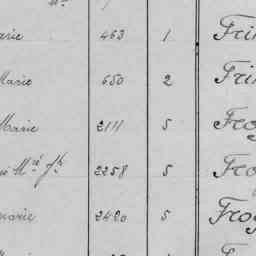 arie 463 1 Fri
Marie 650 2 Fri
Marie 2111 5 Fro
Mie Jh 2258 5 Fro
marie 2490 5 Fro